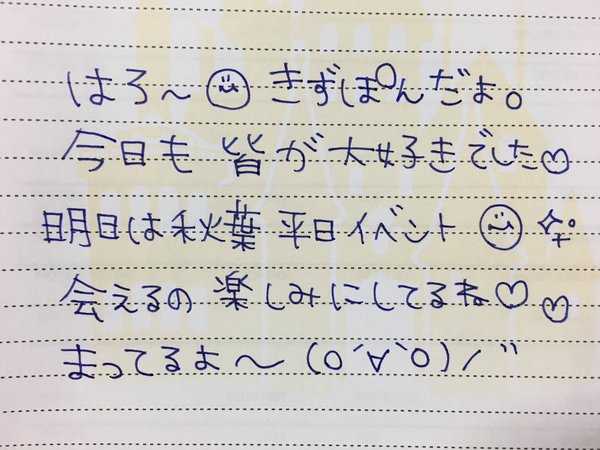 はろ〜☺きずぽんだよ。
今日も皆が大好きでした♡
明日は秋葉平日イベント☺✨
会えるの楽しみにしてるね♡♡
まってるよ〜(o´∀`o)ﾉﾞ